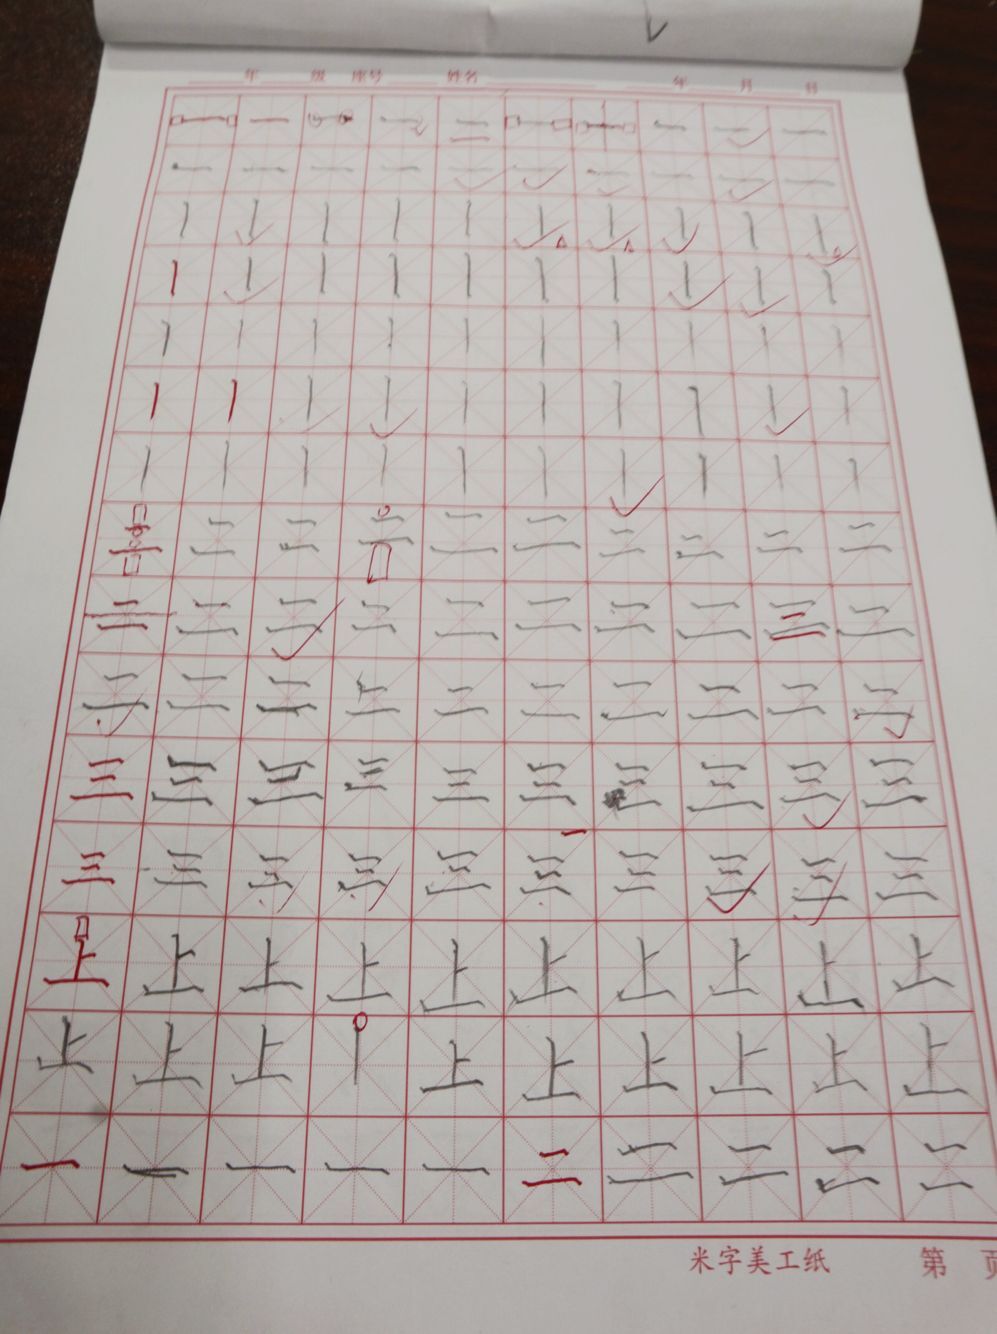 年 级 座号 姓名 年 月 日
一 一 一 一 二 一 一 一 一 一
一 一 一 一 一 一 一 一 一 一
丨 丨 丨 丨 丨 丨 丨 丨 丨 丨
丨 丨 丨 丨 丨 丨 丨 丨 丨 丨
丨 丨 丨 丨 丨 丨 丨 丨 丨 丨
丨 丨 丨 丨 丨 丨 丨 丨 丨 丨
丨 丨 丨 丨 丨 丨 丨 丨 丨 丨
二 二 二 二 二 二 二 二 二 二
二 二 二 二 二 二 二 二 二 二
二 二 二 二 二 二 二 二 二 二
三 三 三 三 三 三 三 三 三 三
三 三 三 三 三 三 三 三 三 三
上 上 上 上 上 上 上 上 上 上
上 上 上 丨 上 上 上 上 上 上
一 一 一 一 一 二 二 二 二 二
米字美工纸 第 页